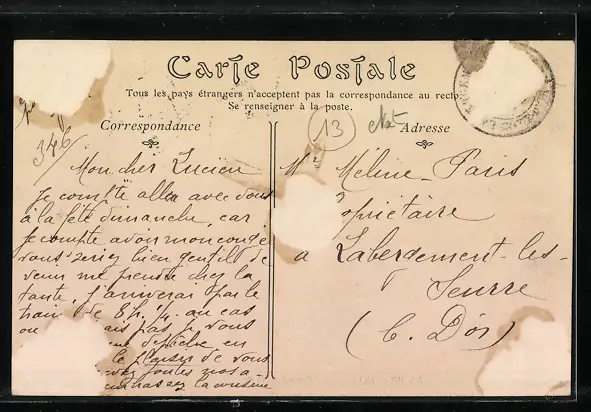 Carte Postale
Tous les pays étrangers n'acceptent pas la correspondance au recto.
Se renseigner à la poste.
Correspondance
Adresse
346
13
Mon cher Lucien
Je compte aller avec vous
à la fête dimanche, car
je compte avoir mon congé
vous seriez bien gentil de
venir me prendre chez la
tante, j'arriverai par le
train de 8h. 1/4 au cas
ou pas je vous
en
le plaisir de vous
toutes nos a-
la cousine
Mr Méline Paris
opriétaire
à Labergement-les-
Seurre
(C. D'Or)